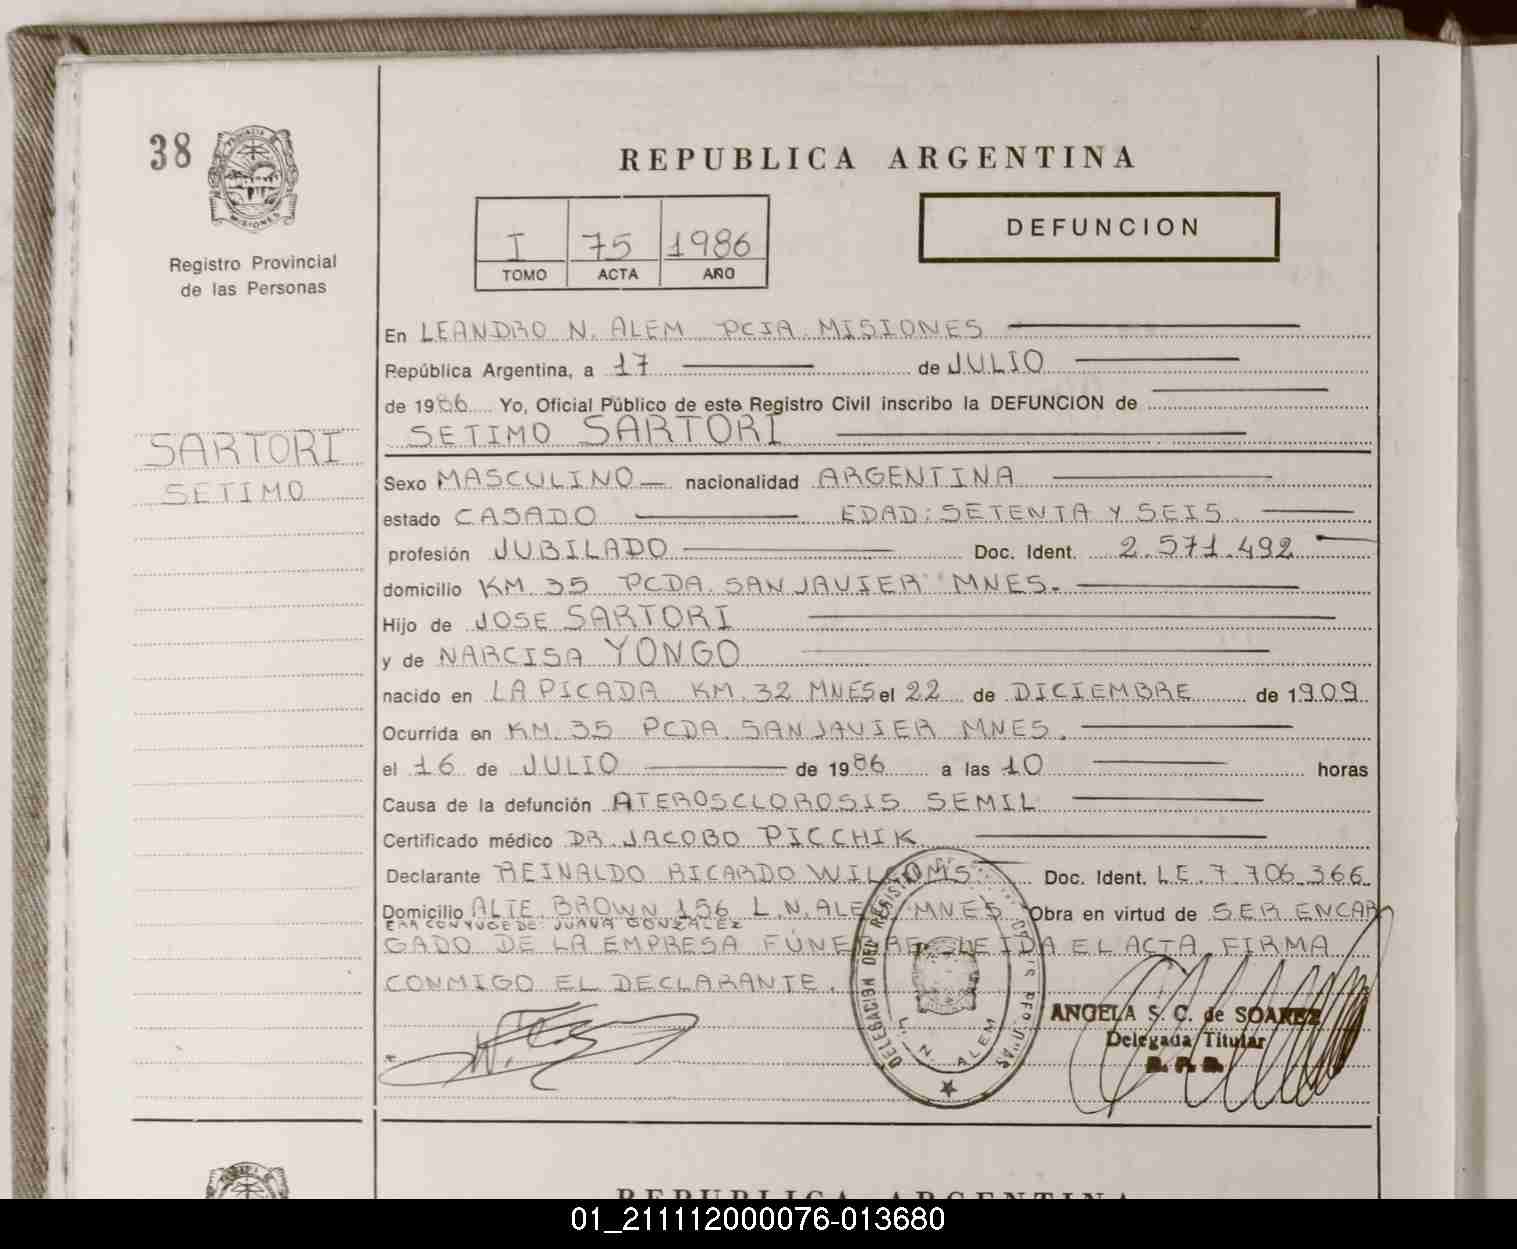 38
PROVINCIA DE
MISIONES
Registro Provincial
de las Personas
REPUBLICA ARGENTINA
I 75 1986
TOMO ACTA AÑO
DEFUNCION
En LEANDRO N. ALEM PCIA. MISIONES
República Argentina, a 17 de JULIO
de 1986 Yo, Oficial Público de este Registro Civil inscribo la DEFUNCION de
SETIMO SARTORI
SARTORI
SETIMO
Sexo MASCULINO nacionalidad ARGENTINA
estado CASADO EDAD: SETENTA Y SEIS
profesión JUBILADO Doc. Ident. 2.571.492
domicilio KM. 35 PCDA. SAN JAVIER MNES.
Hijo de JOSE SARTORI
y de NARCISA YONGO
nacido en LA PICADA KM. 32 MNES el 22 de DICIEMBRE de 1909
Ocurrida en KM. 35 PCDA. SAN JAVIER MNES.
el 16 de JULIO de 1986 a las 10 horas
Causa de la defunción ATEROSCLOROSIS SEMIL
Certificado médico DR. JACOBO PICCHIK
Declarante REINALDO RICARDO WILCOMS Doc. Ident. LE. 7.706.366
Domicilio ALTE. BROWN 156 L.N. ALEM MNES Obra en virtud de SER ENCAR
ERA CONYUGE DE: JUANA GONZALEZ
GADO DE LA EMPRESA FUNEBRE LEIDA EL ACTA FIRMA
CONMIGO EL DECLARANTE.
DELEGACION DEL REGISTRO
L. N. ALEM
ANGELA S. C. de SOAREZ
Delegada Titular
R. P. P.
REPUBLICA ARGENTINA
01_211112000076-013680